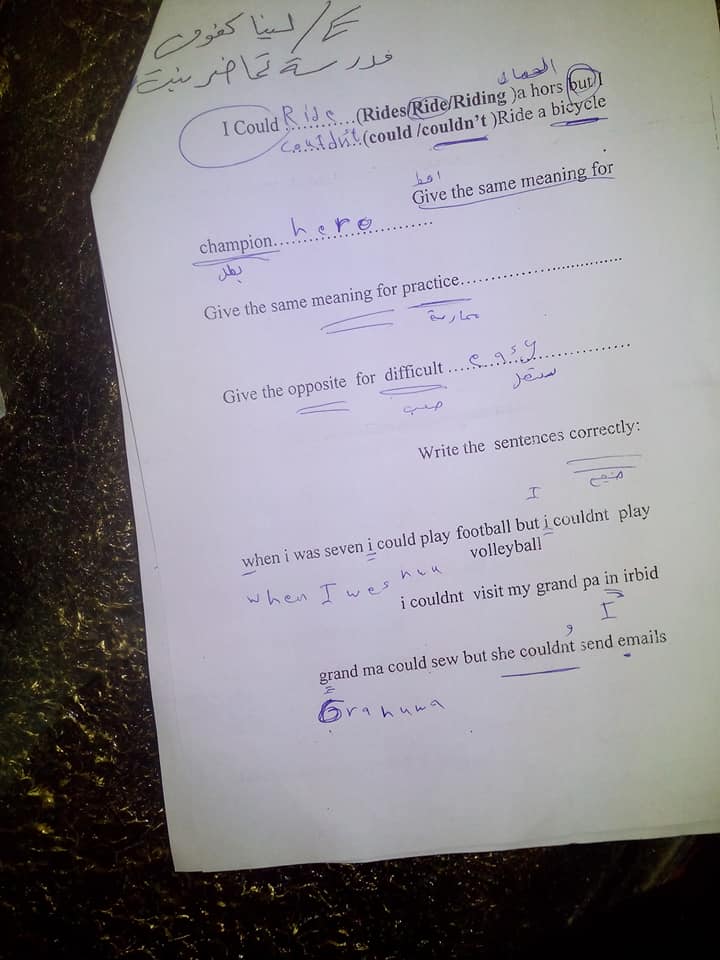 لينا كفوف /ع
مدرسة تماضر بنت
الحصان
I Could Ride (Rides/Ride/Riding )a hors but I
couldn't (could /couldn't )Ride a bicycle
Give the same meaning for
champion hero
بطل
Give the same meaning for practice
ممارسة
Give the opposite for difficult easy
صعب سهل
Write the sentences correctly:
صحيح
I
when i was seven i could play football but i couldnt play
volleyball
when I wes
i couldnt visit my grand pa in irbid
I
grand ma could sew but she couldnt send emails